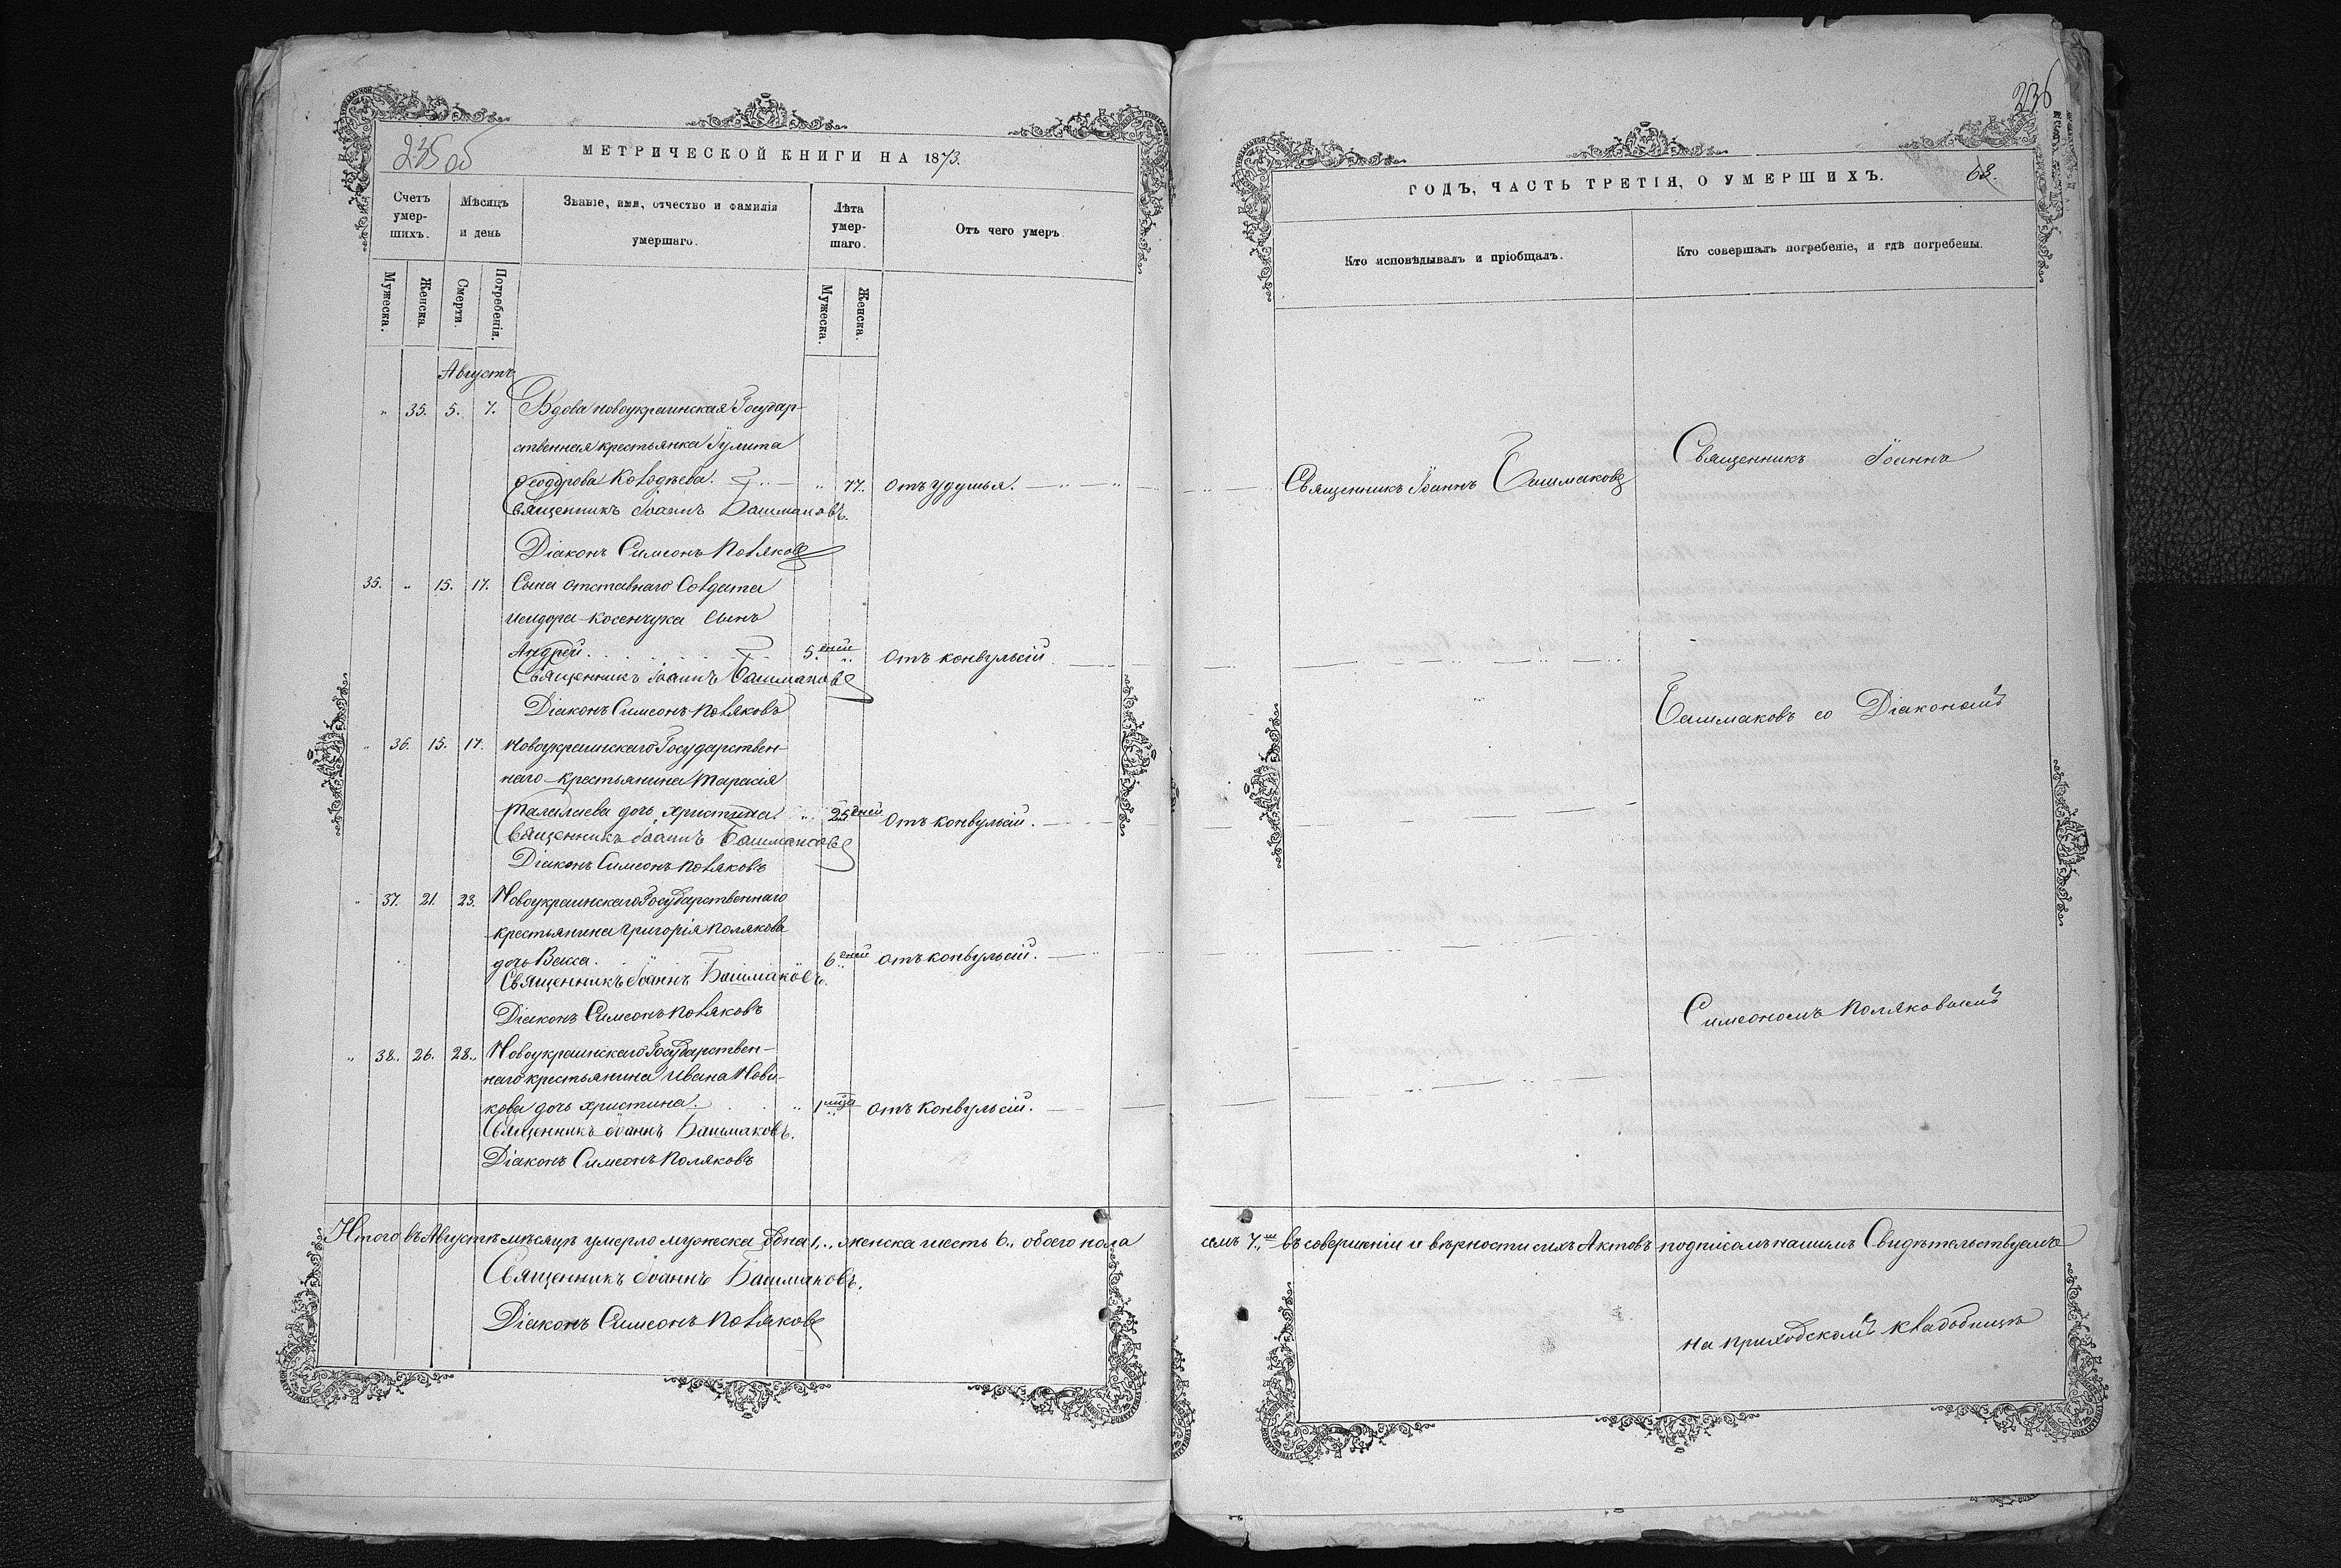 235 об
МЕТРИЧЕСКОЙ КНИГИ НА 1873.
Счетъ умершихъ.
Мѣсяцъ и день
Званіе, имя, отчество и фамилія умершаго.
Лѣта умершаго.
Отъ чего умеръ.
Мужеска.
Женска.
Смерти.
Погребенія.
Мужеска.
Женска.
Августъ
" 35. 5. 7. Вдова новоукраинская Государ-
ственная крестьянка Іулита
Феодорова Колодѣева. " 77. отъ удушья.
Священникъ Іоаннъ Башмаковъ.
Діаконъ Симеонъ Поляковъ
35. " 15. 17. Сына отставнаго Солдата
Исидора Косенчука сынъ
Андрей. 5. дней " отъ конвульсій
Священникъ Іоаннъ Башмаковъ
Діаконъ Симеонъ Поляковъ
" 36. 15. 17. Новоукраинскаго Государствен-
наго крестьянина Тарасія
дочь Христина. " 25 дней отъ конвульсій.
Священникъ Іоаннъ Башмаковъ
Діаконъ Симеонъ Поляковъ
" 37. 21. 23. Новоукраинскаго Государственнаго
крестьянина Григорія Полякова
дочь Васса. 6 дней отъ конвульсій.
Священникъ Іоаннъ Башмаковъ.
Діаконъ Симеонъ Поляковъ
" 38. 26. 28. Новоукраинскаго Государствен-
наго крестьянина Ивана Нови-
кова дочь Христина. " 1 мѣсца отъ конвульсій.
Священникъ Іоаннъ Башмаковъ.
Діаконъ Симеонъ Поляковъ
Итого въ Августѣ мѣсяцѣ умерло мужеска пола 1., женска шесть 6., обоего пола
Священникъ Іоаннъ Башмаковъ.
Діаконъ Симеонъ Поляковъ
236
ГОДЪ, ЧАСТЬ ТРЕТІЯ, О УМЕРШИХЪ.
63.
Кто исповѣдывалъ и пріобщалъ.
Кто совершалъ погребеніе, и гдѣ погребены.
Священникъ Іоаннъ Башмаковъ
Священникъ Іоаннъ
Башмаковъ со Діакономъ
Симеономъ Поляковымъ
семь 7., въ совершеніи и вѣрности сихъ Актовъ подписомъ нашимъ Свидѣтельствуемъ
на приходскомъ кладбищѣ